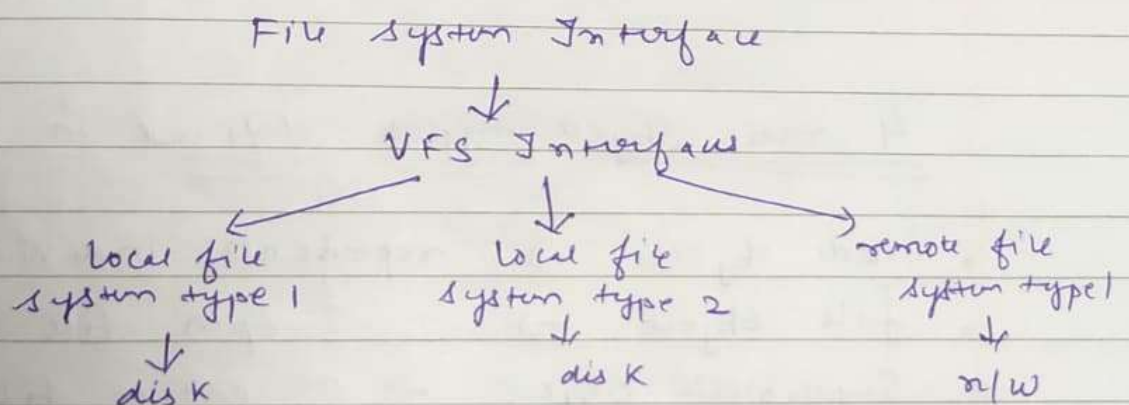 File System Interface
VFS Interface
local file
system type 1
local file
system type 2
remote file
system type 1
disk
disk
n/w